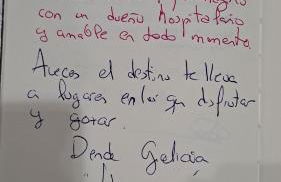 con un dueño hospitalario
y amable en todo momento
Aveces el destino te lleva
a lugares en los que disfrutar
y gozar.
Dende Galicia